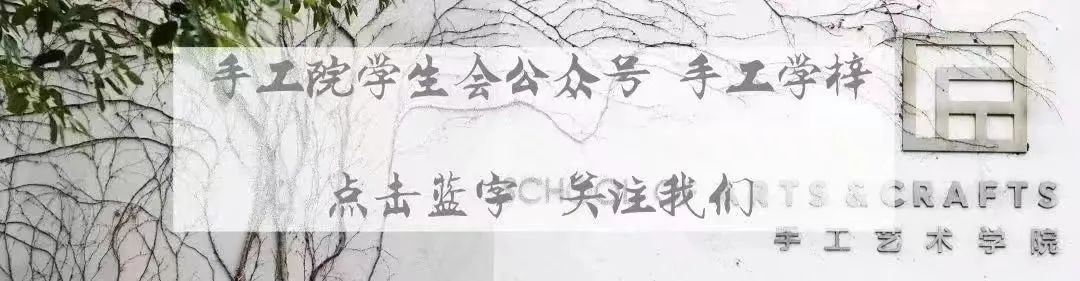 手工院学生会公众号 手工学梓
点击蓝字 关注我们
SCHOOL OF ARTS & CRAFTS
手工艺术学院